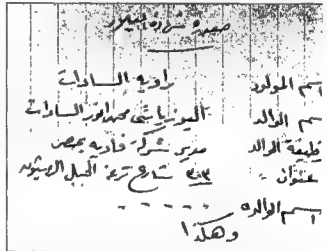 صورة شهادة الميلاد
اسم المولود راوية السادات
اسم الوالد اليوزباشي محمد انور السادات
وظيفة الوالد مدير شركة
عنوان - ٣٠٣ شارع ترعة الجبل الزيتون
اسم الوالده - - - - -
وهكذا